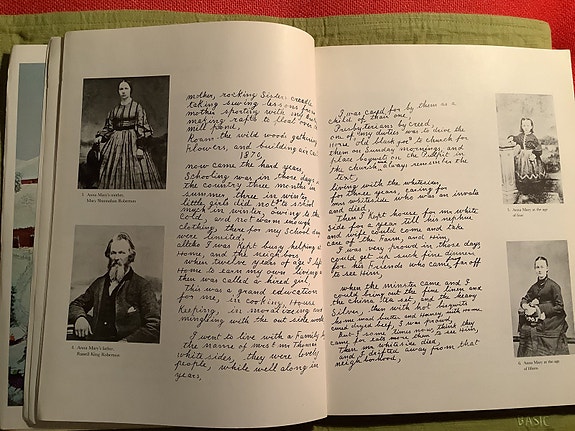 mother, rocking Sister's creadle
taking sewing lessons from
mother sporting with my
making rafts to float over
mill pond,
Roam the wild woods gathering
Flowers, and building air
1870,
now came the hard years,
Schooling was in those days, in
the country three months in
summer, three in winter,
little girls did not go to school
much in winter, owing to the
cold, and not warm enough
clothing, there for my School days
were limited,
altho I was kept busy helping at
Home, and the neighbors,
when twelve years of age I left
Home to earn my own living as
then was called a hired girl,
This was a grand education
for me, in cooking, House
Keeping, in moralizing and
mingling with the out side world
I went to live with a Family by
the name of mr&mrs Thomas
whiteside, they were lovely
people, while well along in
years,
3. Anna Mary's mother,
Mary Shannahan Robertson
4. Anna Mary's father,
Russell King Robertson
I was cared for by them as a
child of their own,
Presbyterians by creed,
one of my duties was to drive the
horse "old black joe" to church for
them on Sunday mornings, and to
place boquets on the Pulpit in
the church, always remember the
text,
living with the whitesides
for some years, caring for
mrs whiteside who was an invalid
and died,
Then I Kept house for mr white
side for a year till his nephue
and wife could come and take
care of the Farm, and him,
I was very prowd in those days
could get up such fine dinners
for his friends who came far off
to see him,
when the minster came and I
could bring out the fine linen and
the china tea set, and the heavy
Silver, then with hot biscuits
home made butter and Honey, with home
cured dryed beef, I was proud,
but I some times now think they
came for eats more than to see him,
Then mr whiteside died,
and I drifted away from that
neighborhood,
5. Anna Mary at the age
of four
6. Anna Mary at the age
of fifteen
BASIC